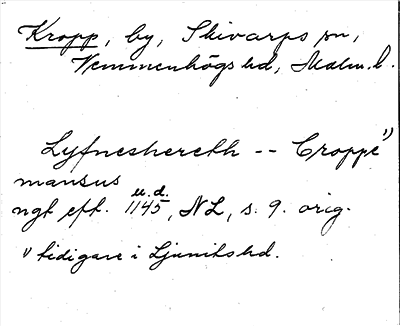 Kropp, by, Skivarps sn,
Vemmenhögs hd, Malm. l.
Lyfneshereth -- Croppe 1)
mansus
u. d.
ngt eft. 1145, NL, s. 9. orig.
1) tidigare i Ljunits hd.